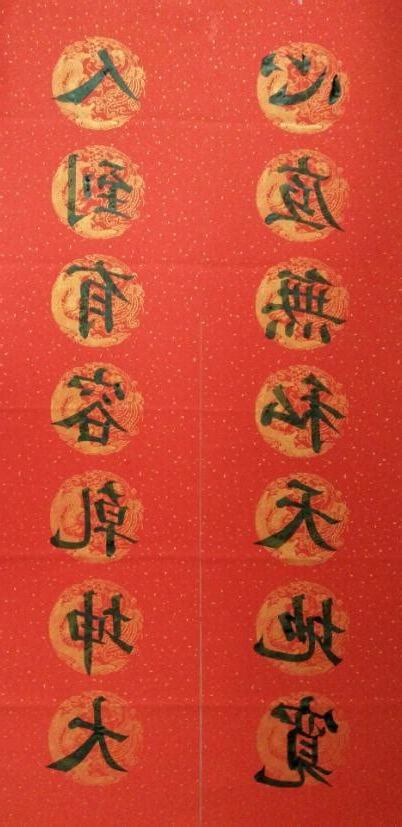 人到有容乾坤大
心底無私天地寬